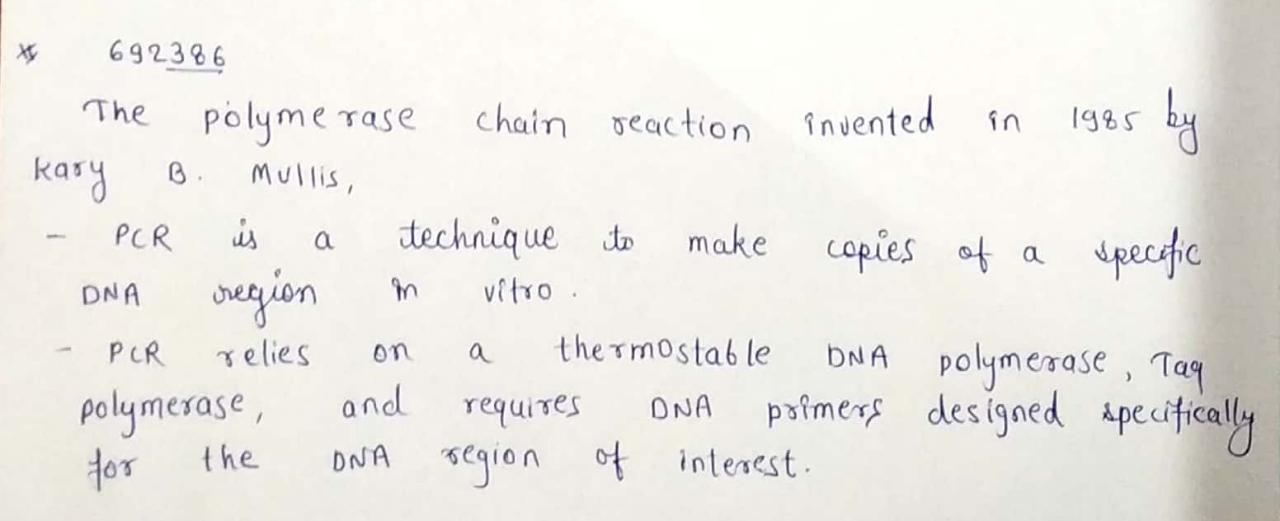 * 692386
The polymerase chain reaction invented in 1985 by
kary B. Mullis,
- PCR is a technique to make copies of a specific
DNA region in vitro.
- PCR relies on a thermostable DNA polymerase, Taq
polymerase, and requires DNA primers designed specifically
for the DNA region of interest.